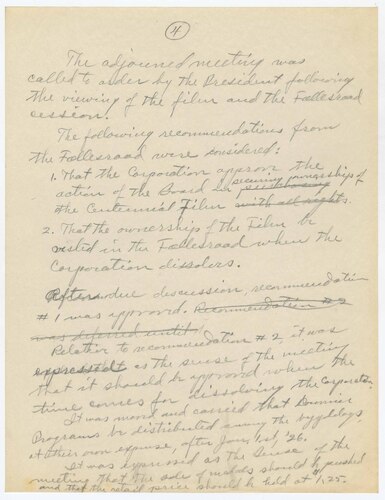 4
The adjourned meeting was
called to order by the President following
the viewing of the film and the Fellesraad
session.
The following recommendations from
the Fellesraad were considered:
1. That the Corporation approve the
action of the Board in securing ownership of
the Centennial Film with all rights.
2. That the ownership of the Film be
vested in the Fellesraad when the
Corporation dissolves.
After due discussion, recommendation
# 1 was approved. Recommendation # 2
was deferred until
Relative to recommendation # 2, it was
expressed as the sense of the meeting
that it should be approved when the
time comes for dissolving the Corporation.
It was moved and carried that
Programs be distributed among the bygdelags
at their own expense, after Jan. 1st, '26.
It was expressed as the sense of the
meeting that the sale of medals should be pushed
and that the retail price should be held at 1.25.